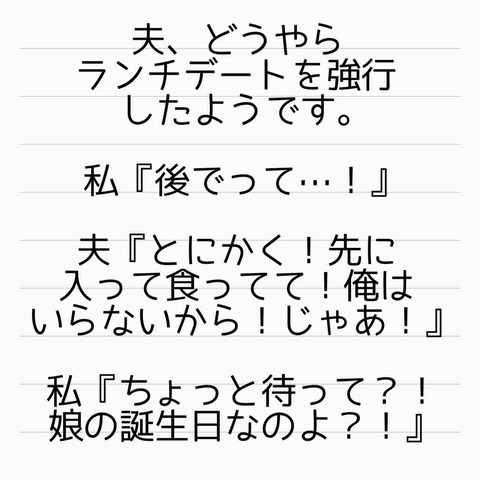 夫、どうやら
ランチデートを強行
したようです。
私『後でって…！』
夫『とにかく！先に
入って食ってて！俺は
いらないから！じゃあ！』
私『ちょっと待って？！
娘の誕生日なのよ？！』